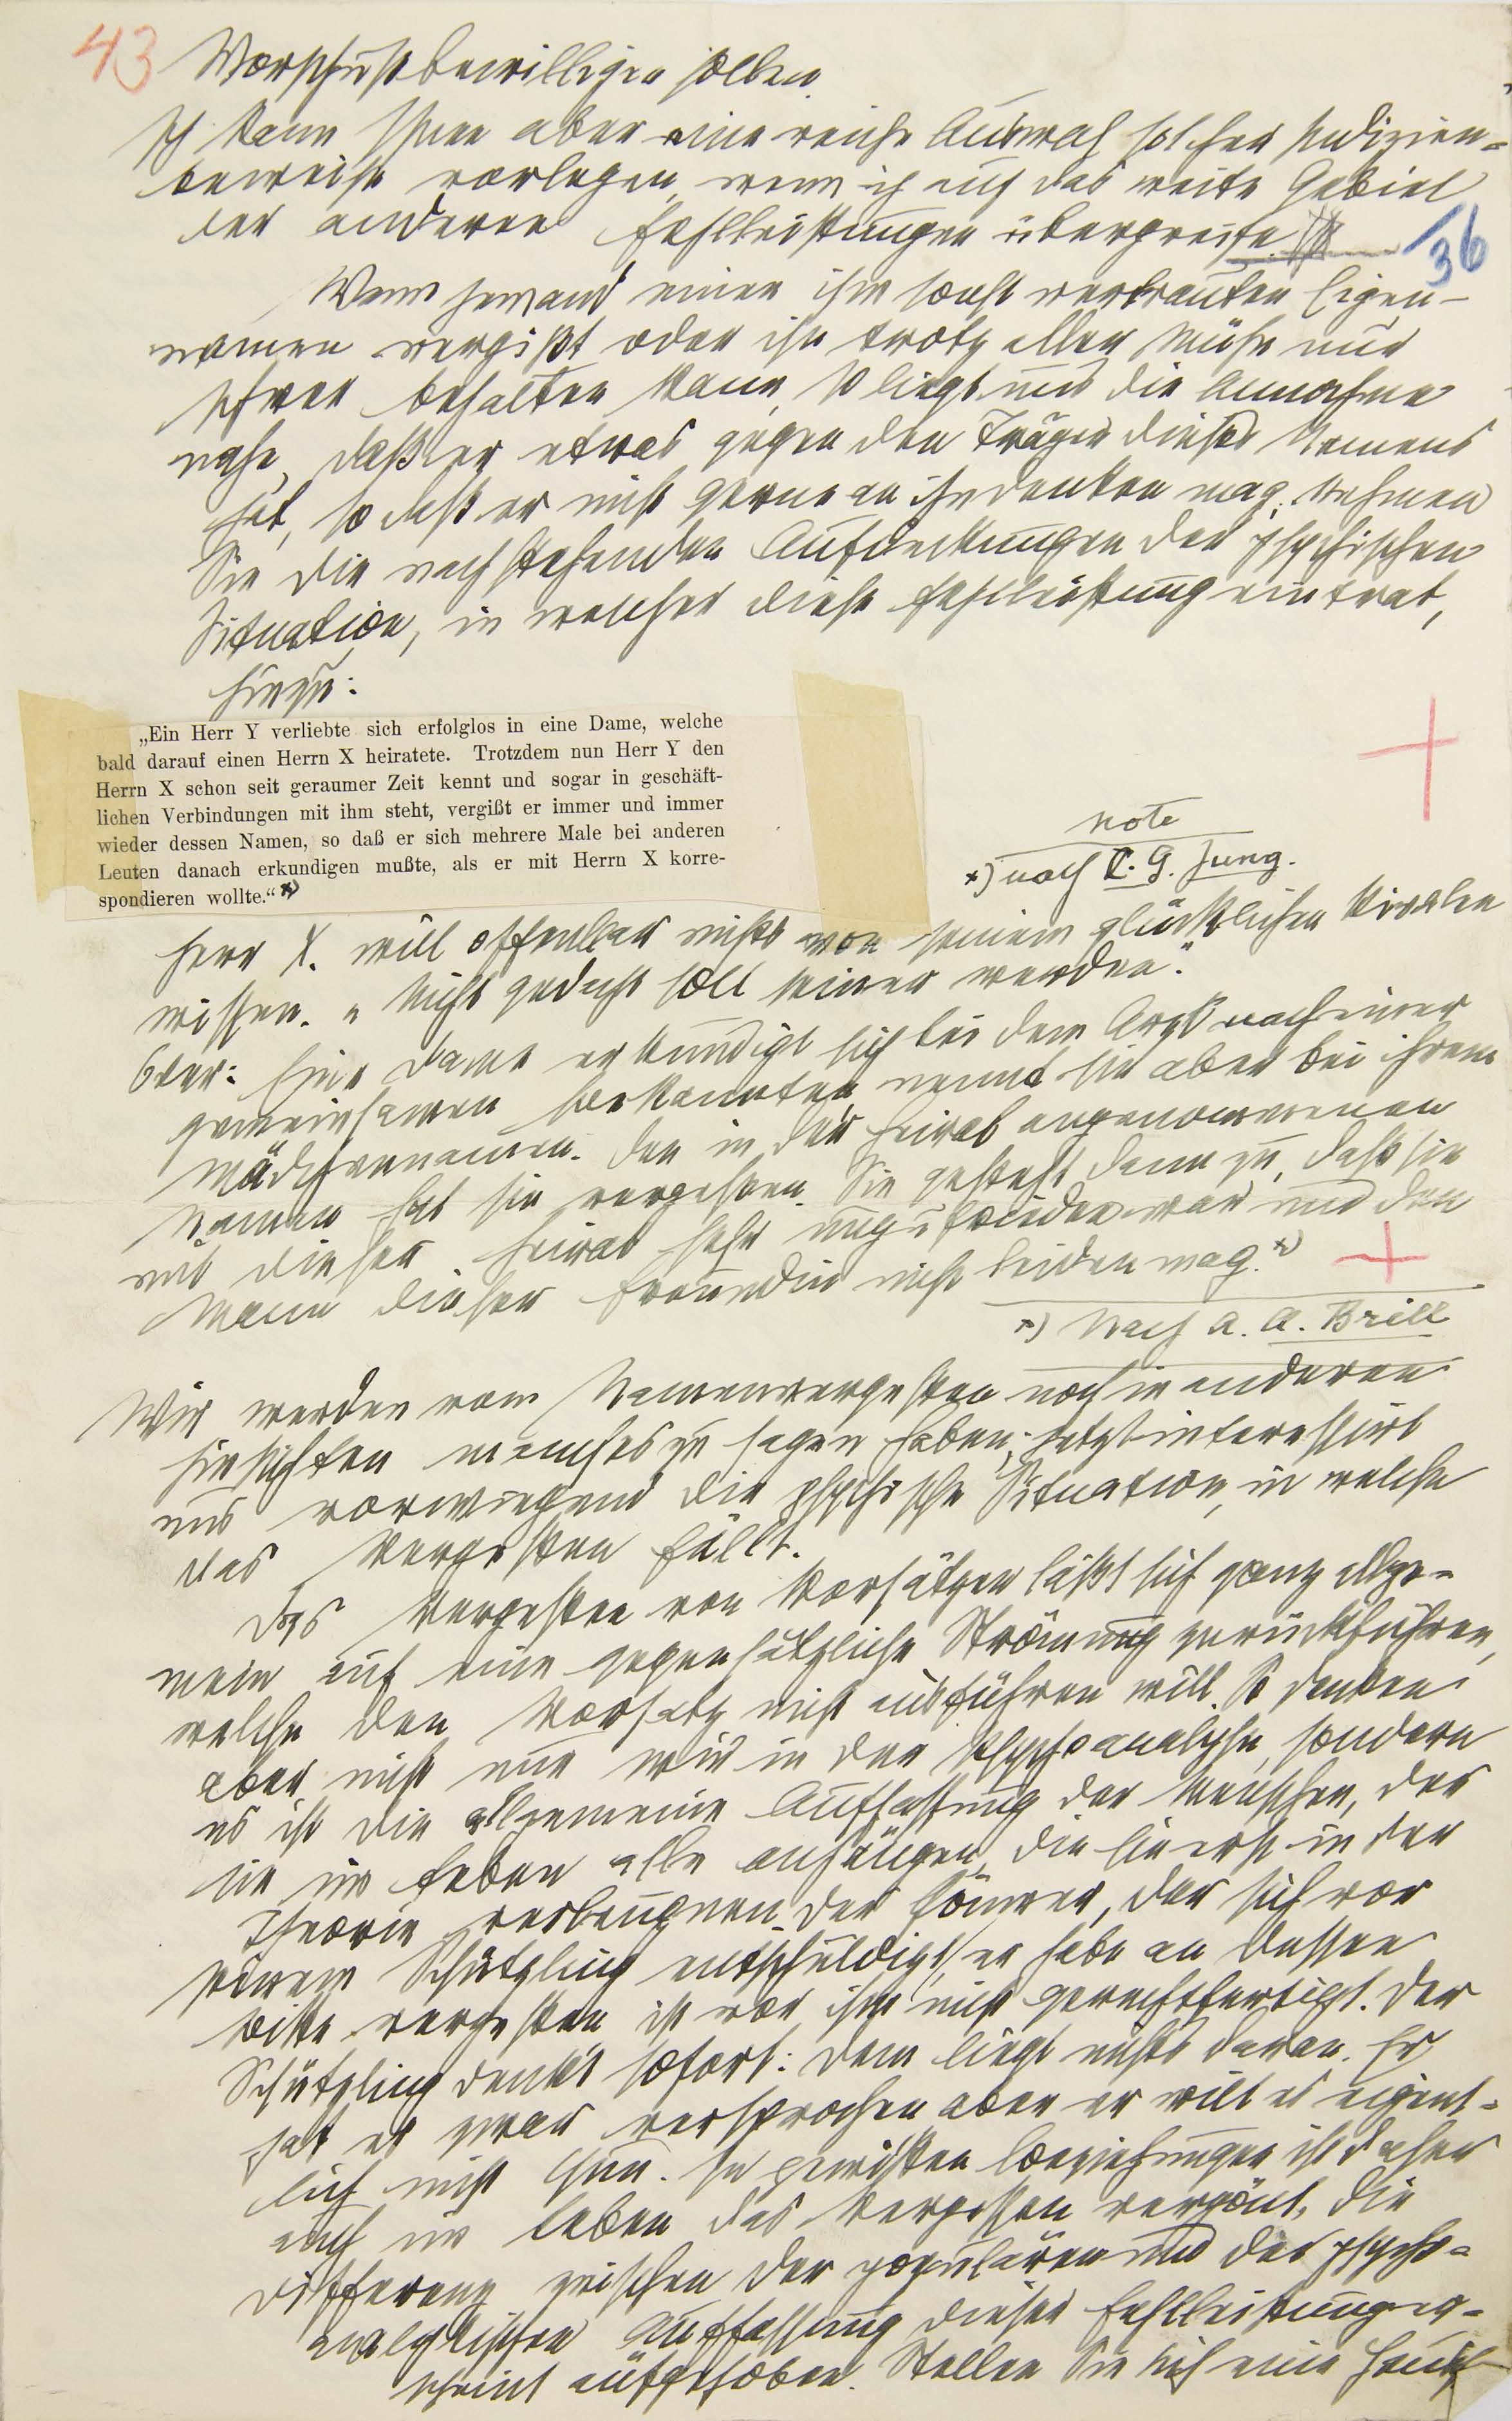 43
Vorschuß bewilligen sollen.
Ich kann Ihnen aber eine reiche Auswahl solcher Indizien-
beweise vorlegen, wenn ich auf das weite Gebiet
der anderen Fehlleistungen übergreife.
36
Wenn jemand einen ihm sonst vertrauten Eigen-
namen vergißt oder ihn trotz aller Mühe nur
schwer behalten kann, so liegt uns die Annahme
nahe, daß er etwas gegen den Träger dieses Namens
hat, so daß er nicht gerne an ihn denken mag. Nehmen
Sie die nachstehenden Aufdeckungen der psychischen
Situation, in welcher diese Fehlleistung eintrat,
hinzu:
„Ein Herr Y verliebte sich erfolglos in eine Dame, welche
bald darauf einen Herrn X heiratete. Trotzdem nun Herr Y den
Herrn X schon seit geraumer Zeit kennt und sogar in geschäft-
lichen Verbindungen mit ihm steht, vergißt er immer und immer
wieder dessen Namen, so daß er sich mehrere Male bei anderen
Leuten danach erkundigen mußte, als er mit Herrn X korre-
spondieren wollte.“ *)
Note
*) nach C. G. Jung.
Herr Y. will offenbar nichts von seinem glücklichen Rivalen
wissen. „Nicht gedacht soll seiner werden.“
Oder: Eine Dame erkundigt sich bei dem Arzt nach einer
gemeinsamen Bekannten, nennt sie aber bei ihrem
Mädchennamen. Den in der Heirat angenommenen
Namen hat sie vergessen. Sie gesteht dann zu, daß sie
mit dieser Heirat sehr unzufrieden war und den
Mann dieser Freundin nicht leiden mag. *)
*) Nach A. A. Brill
Wir werden vom Namenvergessen noch in anderen
Hinsichten manches zu sagen haben; jetzt interessirt
uns vorwiegend die psychische Situation, in welche
das Vergessen fällt.
Das Vergessen von Vorsätzen läßt sich ganz allge-
mein auf eine gegensätzliche Strömung zurückführen,
welche den Vorsatz nicht ausführen will. So denken
aber nicht nur wir in der Psychoanalyse, sondern
es ist die allgemeine Auffassung der Menschen, der
sie im Leben alle anhängen, die sie erst in der
Theorie verleugnen. Der Gönner, der sich vor
seinem Schützling entschuldigt, er habe an dessen
Bitte vergessen, ist vor ihm nicht gerechtfertigt. Der
Schützling denkt sofort: Dem liegt nichts daran. Er
hat es zwar versprochen, aber er will es eigent-
lich nicht thun. In gewissen Beziehungen ist daher
auch im Leben das Vergessen verpönt, die
Differenz zwischen der populären und der psycho-
analytischen Auffassung dieser Fehlleistungen
scheint aufgehoben. Stellen Sie sich eine Haus-